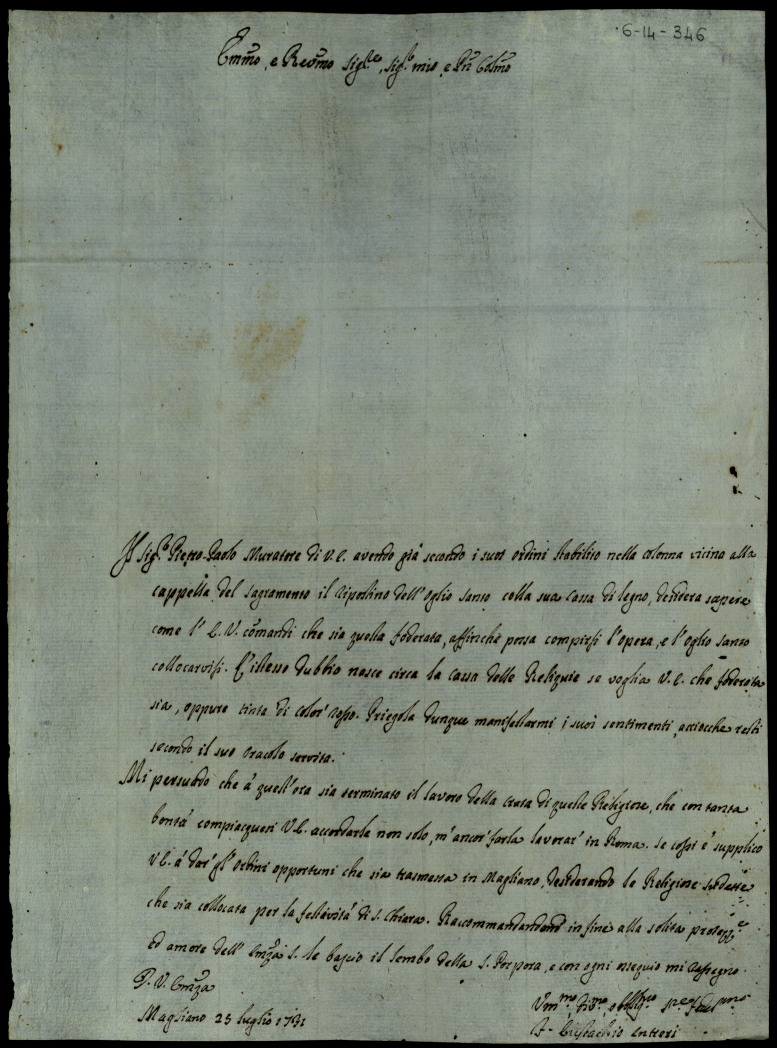 6-14-346
Em̃o, e Reṽmo Sig.re, Sig.r mio, e Pñ Colm̃o
Il Sig.r Pietro Paolo Muratore di V.E. avendo già secondo i suoi ordini stabilito nella colonna vicino alla
cappella del Sagramento il Ciportino dell'Oglio Santo colla sua Cassa di legno, desidera sapere
come l'E.V. comandi che sia quella foderata, affinchè possa compirsi l'opera, e l'oglio santo
collocarvisi. L'istesso dubbio nasce circa la cassa delle Reliquie se voglia V.E. che foderata
sia, oppure tinta di color' rosso. Priegola dunque manifestarmi i suoi sentimenti, acciocche resti
secondo il suo oracolo servita.
Mi persuado che à quell'ora sia terminato il lavoro della Grata di quelle Religiose, che con tanta
bontà compiacquesi V.E. accordarle non solo, m'ancor' farla lavorar' in Roma. Se cossì è supplico
V.E. à dar' gl'Ordini opportuni che sia trasmessa in Magliano, desiderando le Religiose sudette
che sia collocata per la festività di S. Chiara. Raccomandandomi in fine alla solita protezz.e
ed amore dell' Em̃za S. le bascio il lembo della S. Porpora, e con ogni ossequio mi rassegno
D. V. Em̃za
Magliano 25 luglio 1731
Um.mo Div.mo, e oblig.